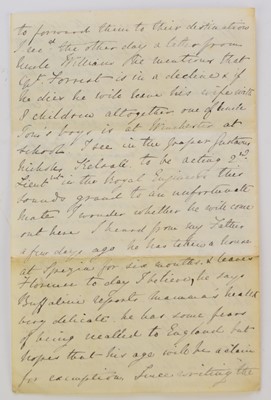 to forward them to their destinations
I rec'd the other day a letter from
Uncle William. He mentions that
Forrest is in a decline & if
he dies he will leave his wife with
children altogether one of Uncle
Tom's boys is at Winchester at
school. I see in the paper Gustavus
to be acting 2nd
Lieut in the Royal Engineers this
sounds grand to an unfortunate
I wonder whether he will come
out here. I heard from my Father
a few days ago he has taken a house
at Spezia for six months & leaves
Florence to day I believe, he says
reports mamma's health
very delicate he has some fears
of being recalled to England but
hopes that his age will be a claim
for exemption. Since writing the